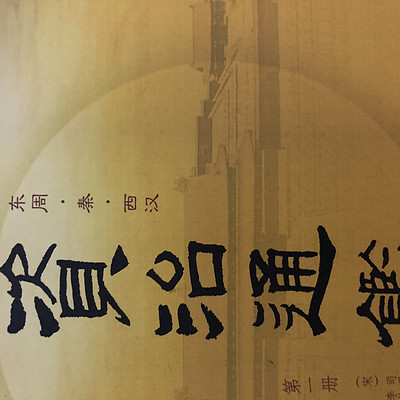 东周·秦·西汉
資治通鑑
第一册
（宋）司